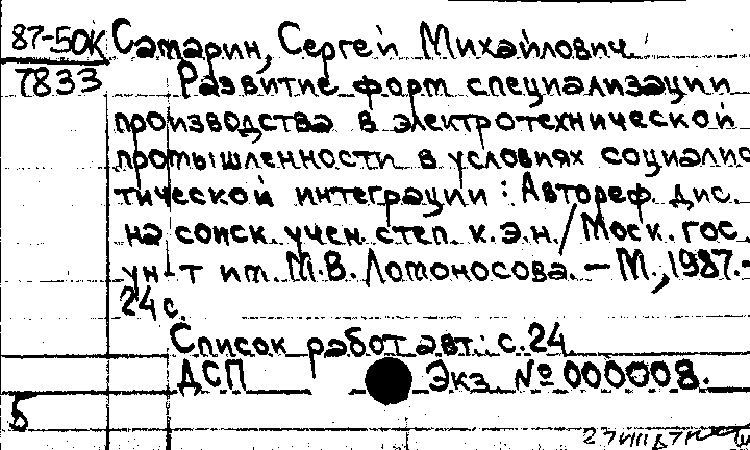 87-50К Самарин, Сергей Михайлович
7833 Развитие форм специализации
производства в электротехнической
промышленности в условиях социалис
тической интеграции : Автореф. дис.
на соиск. учен. степ. к.э.н. / Моск. гос.
ун-т им. М.В. Ломоносова. – М., 1987.-
24 с.
Список работ авт.: с. 24
ДСП Экз. № 000008.
Б